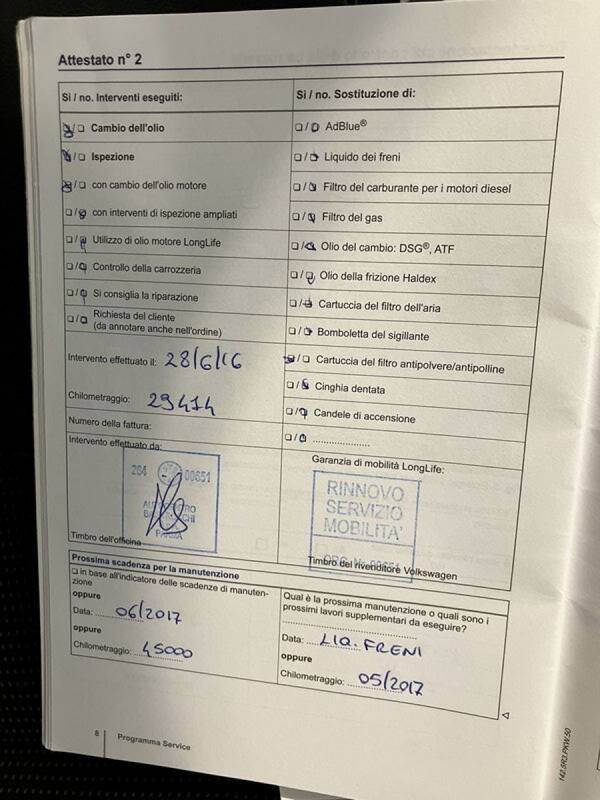 Attestato n° 2
Si / no. Interventi eseguiti:
Cambio dell'olio
Ispezione
con cambio dell'olio motore
con interventi di ispezione ampliati
Utilizzo di olio motore LongLife
Controllo della carrozzeria
Si consiglia la riparazione
Richiesta del cliente
(da annotare anche nell'ordine)
Intervento effettuato il: 28/6/16
Chilometraggio: 29414
Numero della fattura:
Intervento effettuato da:
204 00851
PARMA
Timbro dell'officina
Si / no. Sostituzione di:
AdBlue®
Liquido dei freni
Filtro del carburante per i motori diesel
Filtro del gas
Olio del cambio: DSG®, ATF
Olio della frizione Haldex
Cartuccia del filtro dell'aria
Bomboletta del sigillante
Cartuccia del filtro antipolvere/antipolline
Cinghia dentata
Candele di accensione
Garanzia di mobilità LongLife:
RINNOVO
SERVIZIO
MOBILITA'
Timbro del rivenditore Volkswagen
Prossima scadenza per la manutenzione
in base all'indicatore delle scadenze di manuten-
zione
oppure
Data: 06/2017
oppure
Chilometraggio: 45000
Qual è la prossima manutenzione o quali sono i
prossimi lavori supplementari da eseguire?
Data: LIQ. FRENI
oppure
Chilometraggio: 05/2017
8 Programma Service
142.5R3.PKW.50